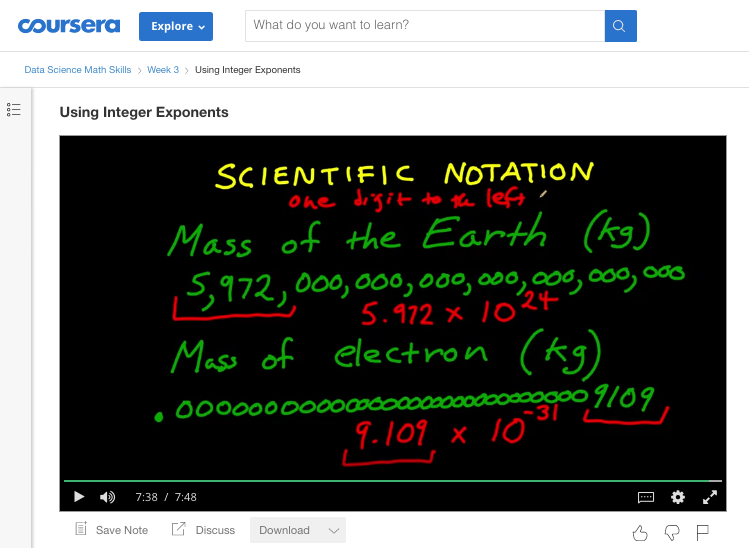 coursera
Explore
What do you want to learn?
Data Science Math Skills > Week 3 > Using Integer Exponents
Using Integer Exponents
SCIENTIFIC NOTATION
one digit to the left
Mass of the Earth (kg)
5,972,000,000,000,000,000,000,000
5.972 x 10^24
Mass of electron (kg)
.0000000000000000000000000000009109
9.109 x 10^-31
7:38 / 7:48
Save Note Discuss Download